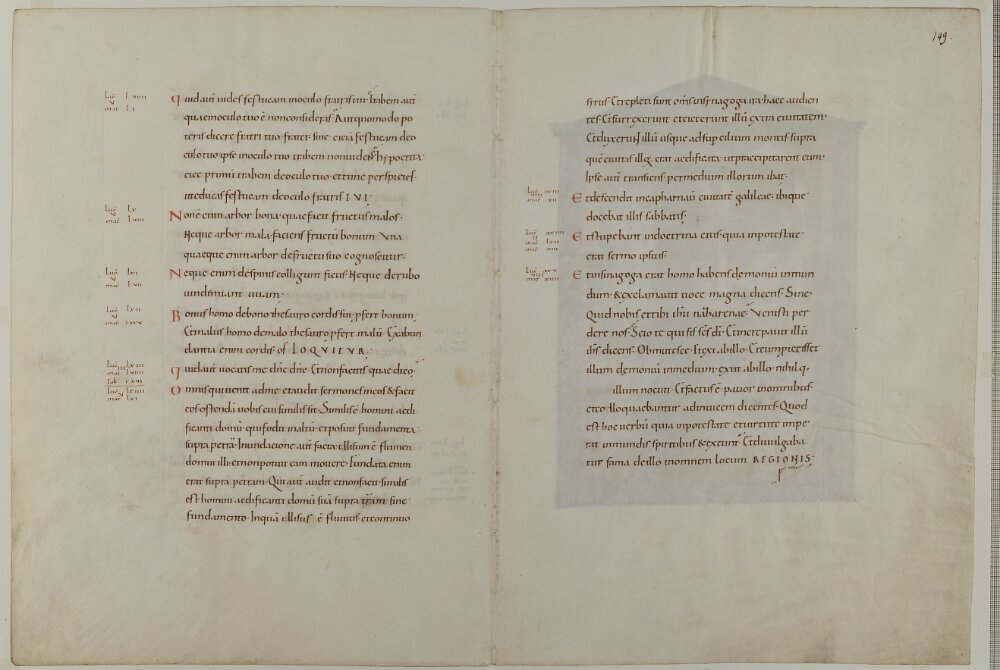 Quid aut uides festucam inoculo fratris tui trabem aut
quae inoculo tuo ē nonconsideras Aut quomodo po
teris dicere fratri tuo frater sine eiciā festucam deo
culo tuo ipse inoculo tuo trabem non uidens hypocrita
eice primū trabem deoculo tuo et tunc perspicies
ut educas festucam deoculo fratris TUI
Non ē enim arbor bona quae facit fructus malos
Neque arbor mala faciens fructū bonum Una
quaeque enim arbor defructu suo cognoscitur
Neque enim despinis colligunt ficus Neque derubo
uindemiant uuam
Bonus homo debono thesauro cordis sui p̄fert bonum
Et malus homo demalo thesauro p̄fert malū Exabun
dantia enim cordis os LOQUITUR
Quid autē uocatis me dn̄e dn̄e Et non facitis quae dico
Omnis qui uenit adme et audit sermones meos & facit
eos ostendā uobis cui similis sit Similis ē homini aedi
ficanti domū qui fodit in altū et posuit fundamenta
supra petrā Inundatione aut facta illisum ē flumen
domui illi et non potuit eam mouere Fundata enim
erat supra petram Qui aut audit et non facit similis
est homini aedificanti domū suā supra terram sine
fundamento Inquā illisus ē fluuius et continuo
149
strus Et repleti sunt om̄s insynagoga ira haec audien
tes Et surrexerunt et eiecerunt illū extra ciuitatem
Et duxerunt illū usque ad supercilium montis supra
quē ciuitas illoꝝ erat aedificata ut praecipitarent eum
Ipse aut transiens permedium illorum ibat
Et descendit incapharnaū ciuitatē galileae ibique
docebat illis sabbatis
Et stupebant indoctrina eius quia inpotestate
erat sermo ipsius
Et insinagoga erat homo habens demoniū inmun
dum & exclamauit uoce magna dicens Sine
Quid nobis et tibi ihū nazarenae Venisti per
dere nos Scio te qui sis sc̄s dī Et increpauit illū
ih̄s dicens Obmutesce & exi abillo Et cum proiecisset
illum demoniū inmedium exiit abillo nihilq
illum nocuit Et factus ē pauor inomnibus
et conloquebantur adinuicem dicentes Quod
est hoc uerbū quia inpotestate et uirtute impe
rat inmundis spiritibus & exeunt Et diuulgaba
tur fama deillo inomnem locum REGIONIS